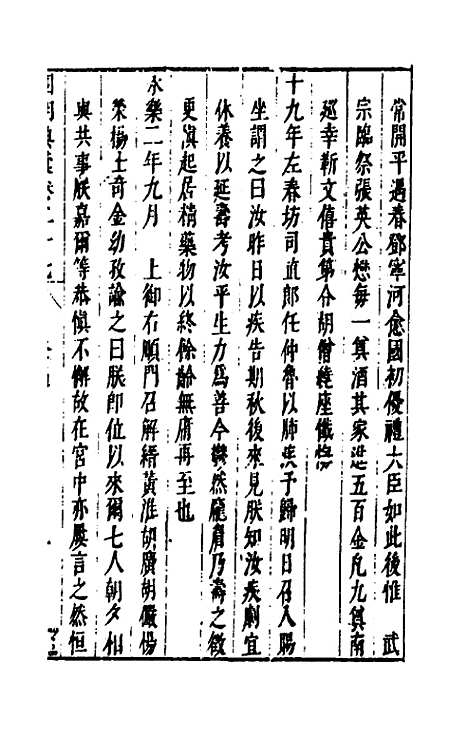 常開平遇春鄧寧河愈國初優禮大臣如此後惟 武
宗臨祭張英公懋每一奠酒其家進五百金凡九奠南
廵幸靳文僖貴第令胡僧繞座懺悔
十九年左春坊司直郎任仲魯以肺疾予歸明日召入賜
坐謂之曰汝昨日以疾告期秋後來見朕知汝疾劇宜
休養以延壽考汝平生力爲善今皤然龐眉乃壽之徵
更演起居稍藥物以終餘齡無庸再至也
永樂二年九月 上御右順門召解縉黃淮胡廣胡儼楊
榮楊士奇金幼孜諭之曰朕即位以來爾七人朝夕相
與共事朕嘉爾等恭慎不懈故在宮中亦屢言之然恒